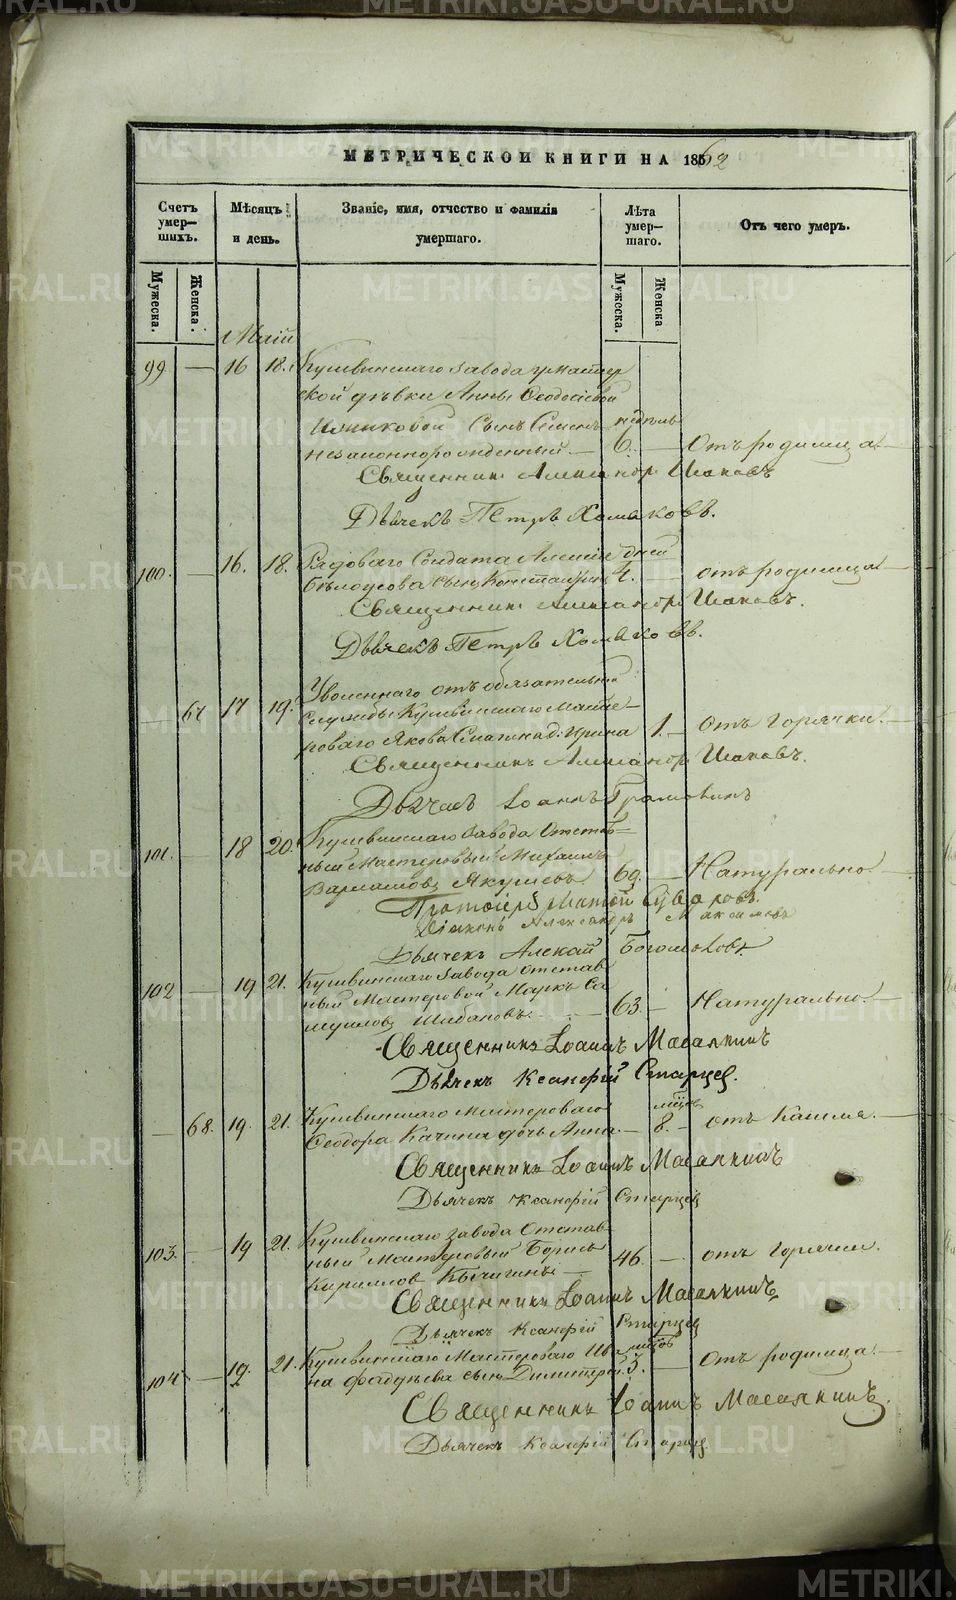 МЕТРИЧЕСКОЙ КНИГИ НА 1862
Счетъ умер—шихъ.
Мѣсяцъ и день.
Званіе, имя, отчество и фамилія умершаго.
Лѣта умер—шаго.
Отъ чего умеръ.
Мужеска.
Женска.
Мужеска.
Женска
Маій
99 — 16 18. Кушвинскаго завода умастер
ской дѣвки Анны Ѳеодосіевой
сынъ Семенъ недѣль
незаконнорожденный — 6. — Отъ родимца
Священникъ Александръ Исаковъ
Дьячекъ Петръ Хомяковъ.
100. — 16. 18. Рядоваго Солдата Алексія дней
Бѣлоусова сынъ Константинъ 4. — отъ родимца
Священникъ Александръ Исаковъ.
Дьячекъ Петръ Хомяковъ.
— 67 17 19. Уволеннаго отъ обязательной
службы Кушвинскаго Масте—
роваго Якова д: Ирина 1. — Отъ горячки.
Священникъ Александръ Исаковъ.
Дьячекъ Іоаннъ
101. — 18 20. Кушвинскаго завода Отстав—
ный Мастеровый Михаилъ
Варламовъ Якушевъ 69. — Натурально
Протоіерей Суворовъ.
Діаконъ Александръ Максимовъ
Дьячекъ Алексій Богомоловъ
102 — 19 21. Кушвинскаго завода отстав
ный Мастеровой Маркъ Са
муиловъ Шабановъ — 63. — Натурально. —
Священникъ Іоаннъ Масалкинъ
Дьячекъ Ксанфій Старцев.
— 68. 19. 21. Кушвинскаго Мастероваго мѣсяц
Ѳеодора Качина дочь Анна — 8. — отъ Кашля. —
Священникъ Іоаннъ Масалкинъ
Дьячекъ Ксанфій Старцев
103. — 19 21. Кушвинскаго завода Отстав
ный Мастеровый Борисъ
Кириллов 46. — отъ Горячки.
Священникъ Іоаннъ Масалкинъ
Дьячекъ Ксанфій Старцев
104 — 19. 21. Кушвинскаго Мастероваго Ива мѣсяцов
на Фадѣева сынъ Димитрій 3. — Отъ родимца. —
Священникъ Іоаннъ Масалкинъ.
Дьячекъ Ксанфій Старцев
METRIKI.GASO-URAL.RU